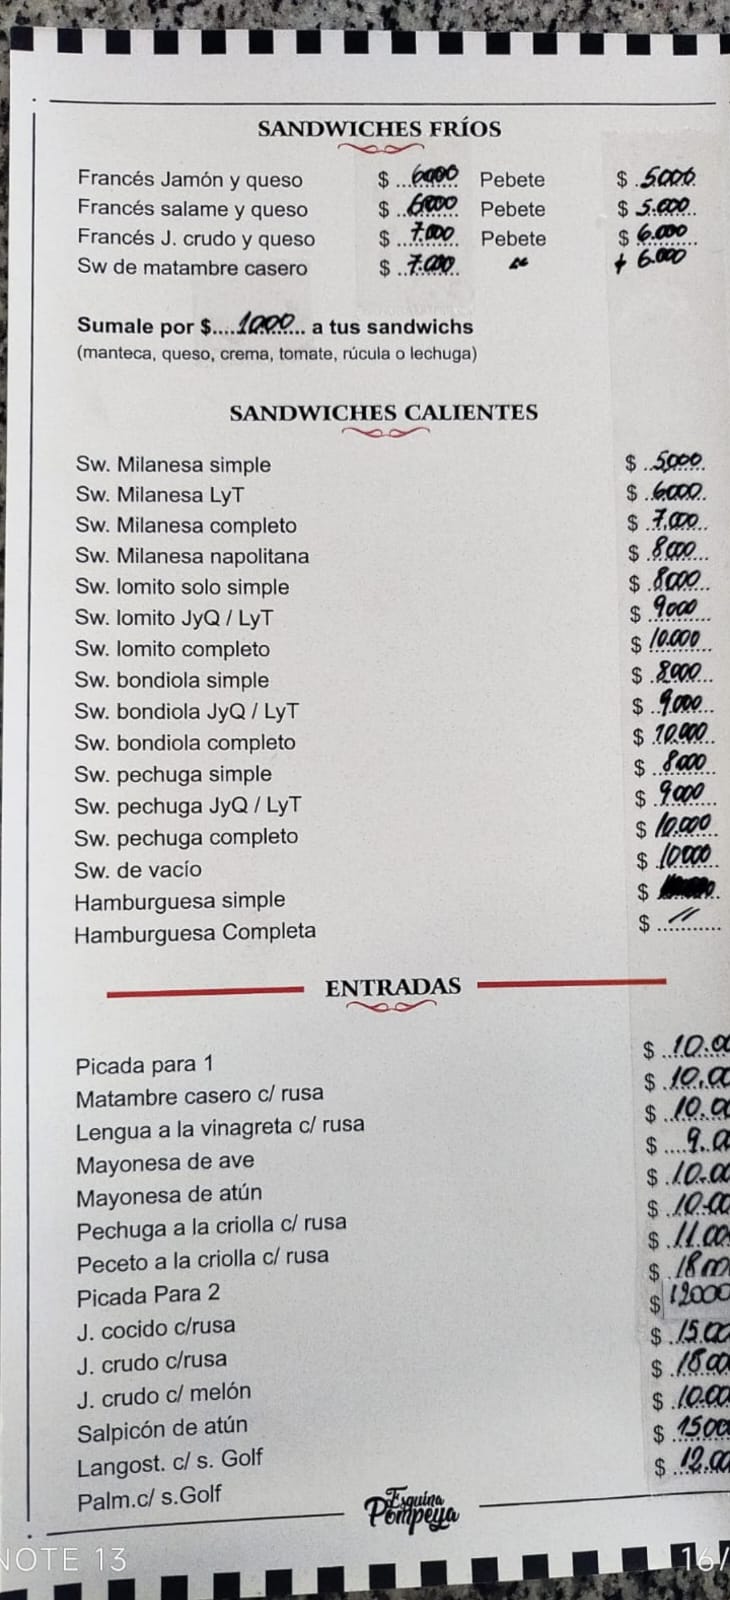 SANDWICHES FRÍOS
Francés Jamón y queso $ 6000 Pebete $ 5.000
Francés salame y queso $ 6000 Pebete $ 5.000
Francés J. crudo y queso $ 7.000 Pebete $ 6.000
Sw de matambre casero $ 7.000 " $ 6.000
Sumale por $....1000... a tus sandwichs
(manteca, queso, crema, tomate, rúcula o lechuga)
SANDWICHES CALIENTES
Sw. Milanesa simple $ 5000
Sw. Milanesa LyT $ 6.000
Sw. Milanesa completo $ 7.000
Sw. Milanesa napolitana $ 8000
Sw. lomito solo simple $ 8000
Sw. lomito JyQ / LyT $ 9000
Sw. lomito completo $ 10.000
Sw. bondiola simple $ 8.000
Sw. bondiola JyQ / LyT $ 9.000
Sw. bondiola completo $ 10.000
Sw. pechuga simple $ 8000
Sw. pechuga JyQ / LyT $ 9000
Sw. pechuga completo $ 10.000
Sw. de vacío $ 10000
Hamburguesa simple $
Hamburguesa Completa $ //
ENTRADAS
Picada para 1 $ 10.0
Matambre casero c/ rusa $ 10.00
Lengua a la vinagreta c/ rusa $ 10.0
Mayonesa de ave $ 9.0
Mayonesa de atún $ 10.00
Pechuga a la criolla c/ rusa $ 10.00
Peceto a la criolla c/ rusa $ 11.00
Picada Para 2 $ 18
J. cocido c/rusa $ 12000
J. crudo c/rusa $ 15.00
J. crudo c/ melón $ 1800
Salpicón de atún $ 10.00
Langost. c/ s. Golf $ 1500
Palm.c/ s.Golf $ 12.00
Esquina
Pompeya
NOTE 13 16/